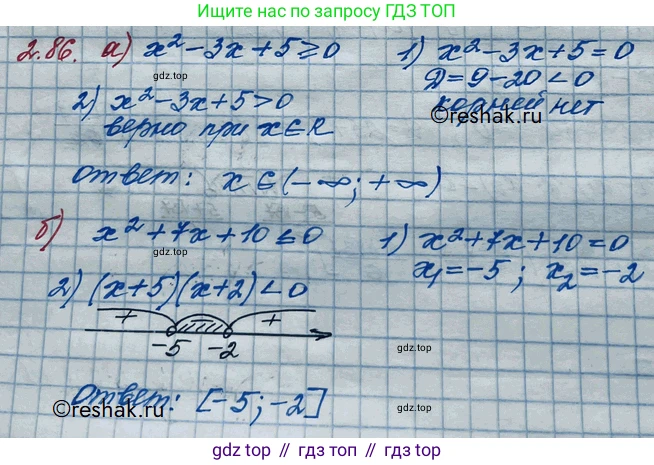 Ищите нас по запросу ГДЗ ТОП
2.86. а) x² - 3x + 5 ≥ 0
1) x² - 3x + 5 = 0
Д = 9 - 20 < 0
корней нет
gdz.top
2) x² - 3x + 5 > 0
верно при x ∈ R
©reshak.ru
ответ: x ∈ (-∞; +∞)
б) x² + 7x + 10 ≤ 0
1) x² + 7x + 10 = 0
x₁ = -5; x₂ = -2
gdz.top
2) (x+5)(x+2) < 0
+ - +
-5 -2
gdz.top
Ответ: [-5; -2]
©reshak.ru
gdz.top
©reshak.ru
gdz top // гдз топ // gdz.top // гдз топ